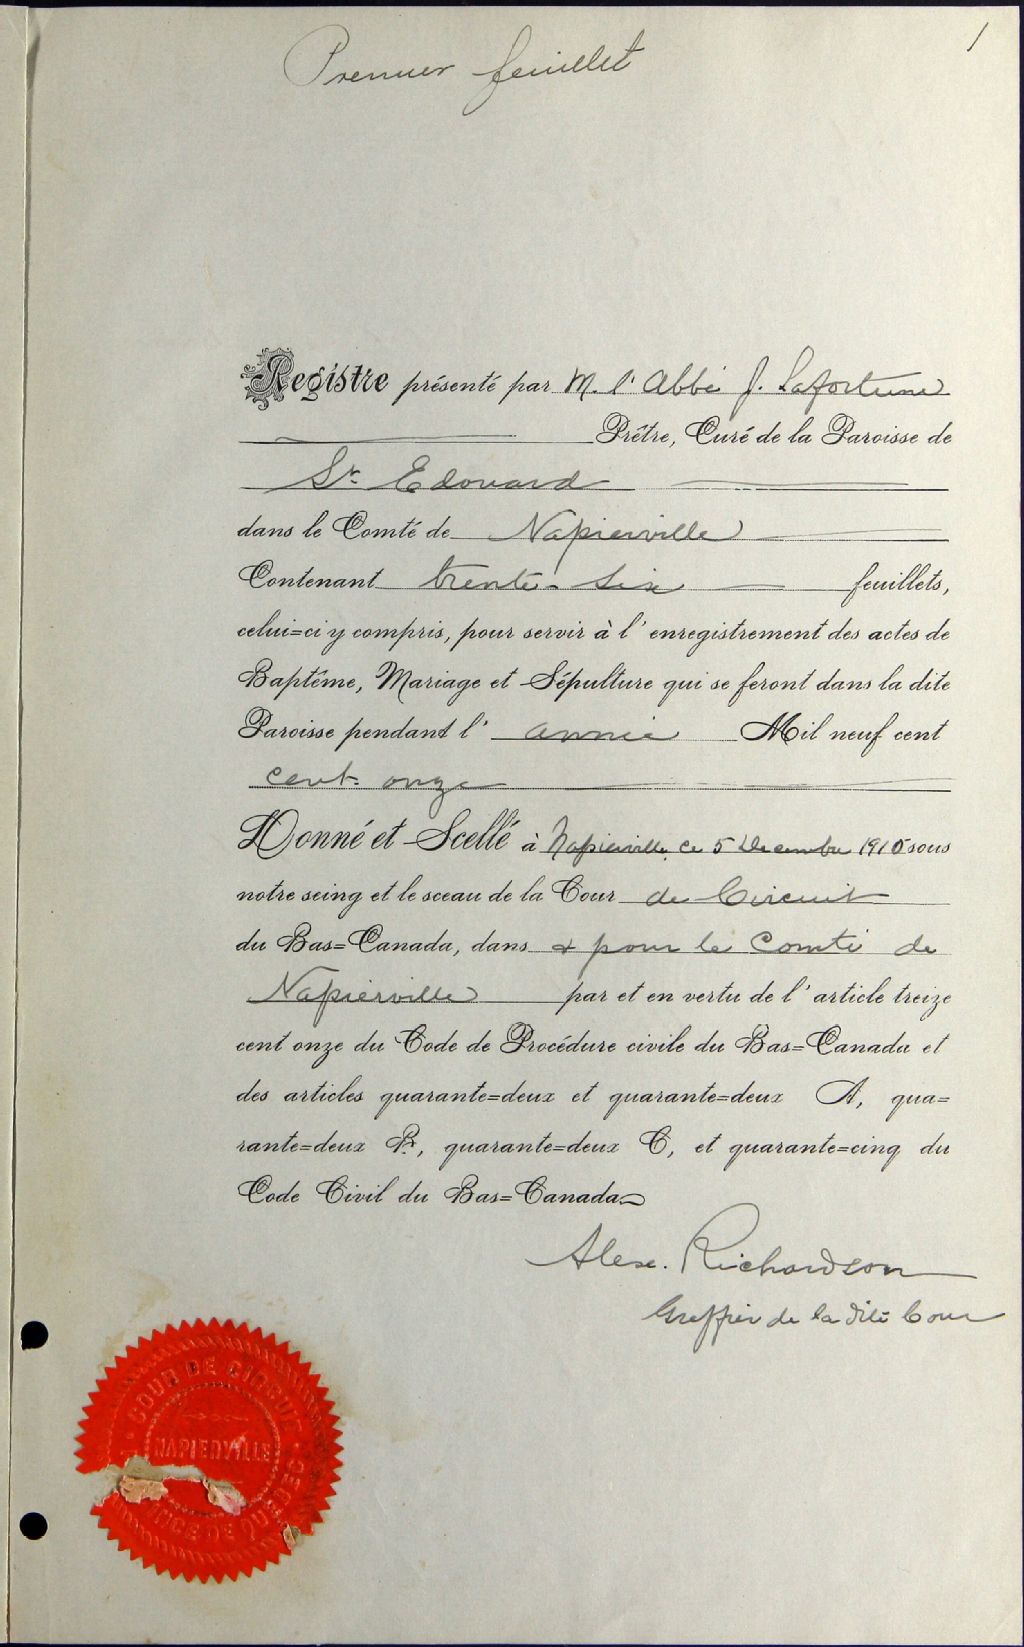 1
Premier feuillet
Registre présenté par M. l'Abbé J. Lafortune
Prêtre, Curé de la Paroisse de
St Edouard
dans le Comté de Napierville
Contenant trente-six feuillets,
celui=ci y compris, pour servir à l'enregistrement des actes de
Baptême, Mariage et Sépulture qui se feront dans la dite
Paroisse pendant l'année Mil neuf cent
cent onze
Donné et Scellé à Napierville, ce 5 Decembre 1910 sous
notre seing et le sceau de la Cour de Circuit
du Bas=Canada, dans & pour le Comté de
Napierville par et en vertu de l'article treize
cent onze du Code de Procédure civile du Bas=Canada et
des articles quarante=deux et quarante=deux A, qua=
rante=deux B, quarante=deux C, et quarante=cinq du
Code Civil du Bas=Canada
Alex. Richardson
Greffier de la dite Cour
COUR DE CIRCUIT
NAPIERVILLE
INCE DE QUEBEC